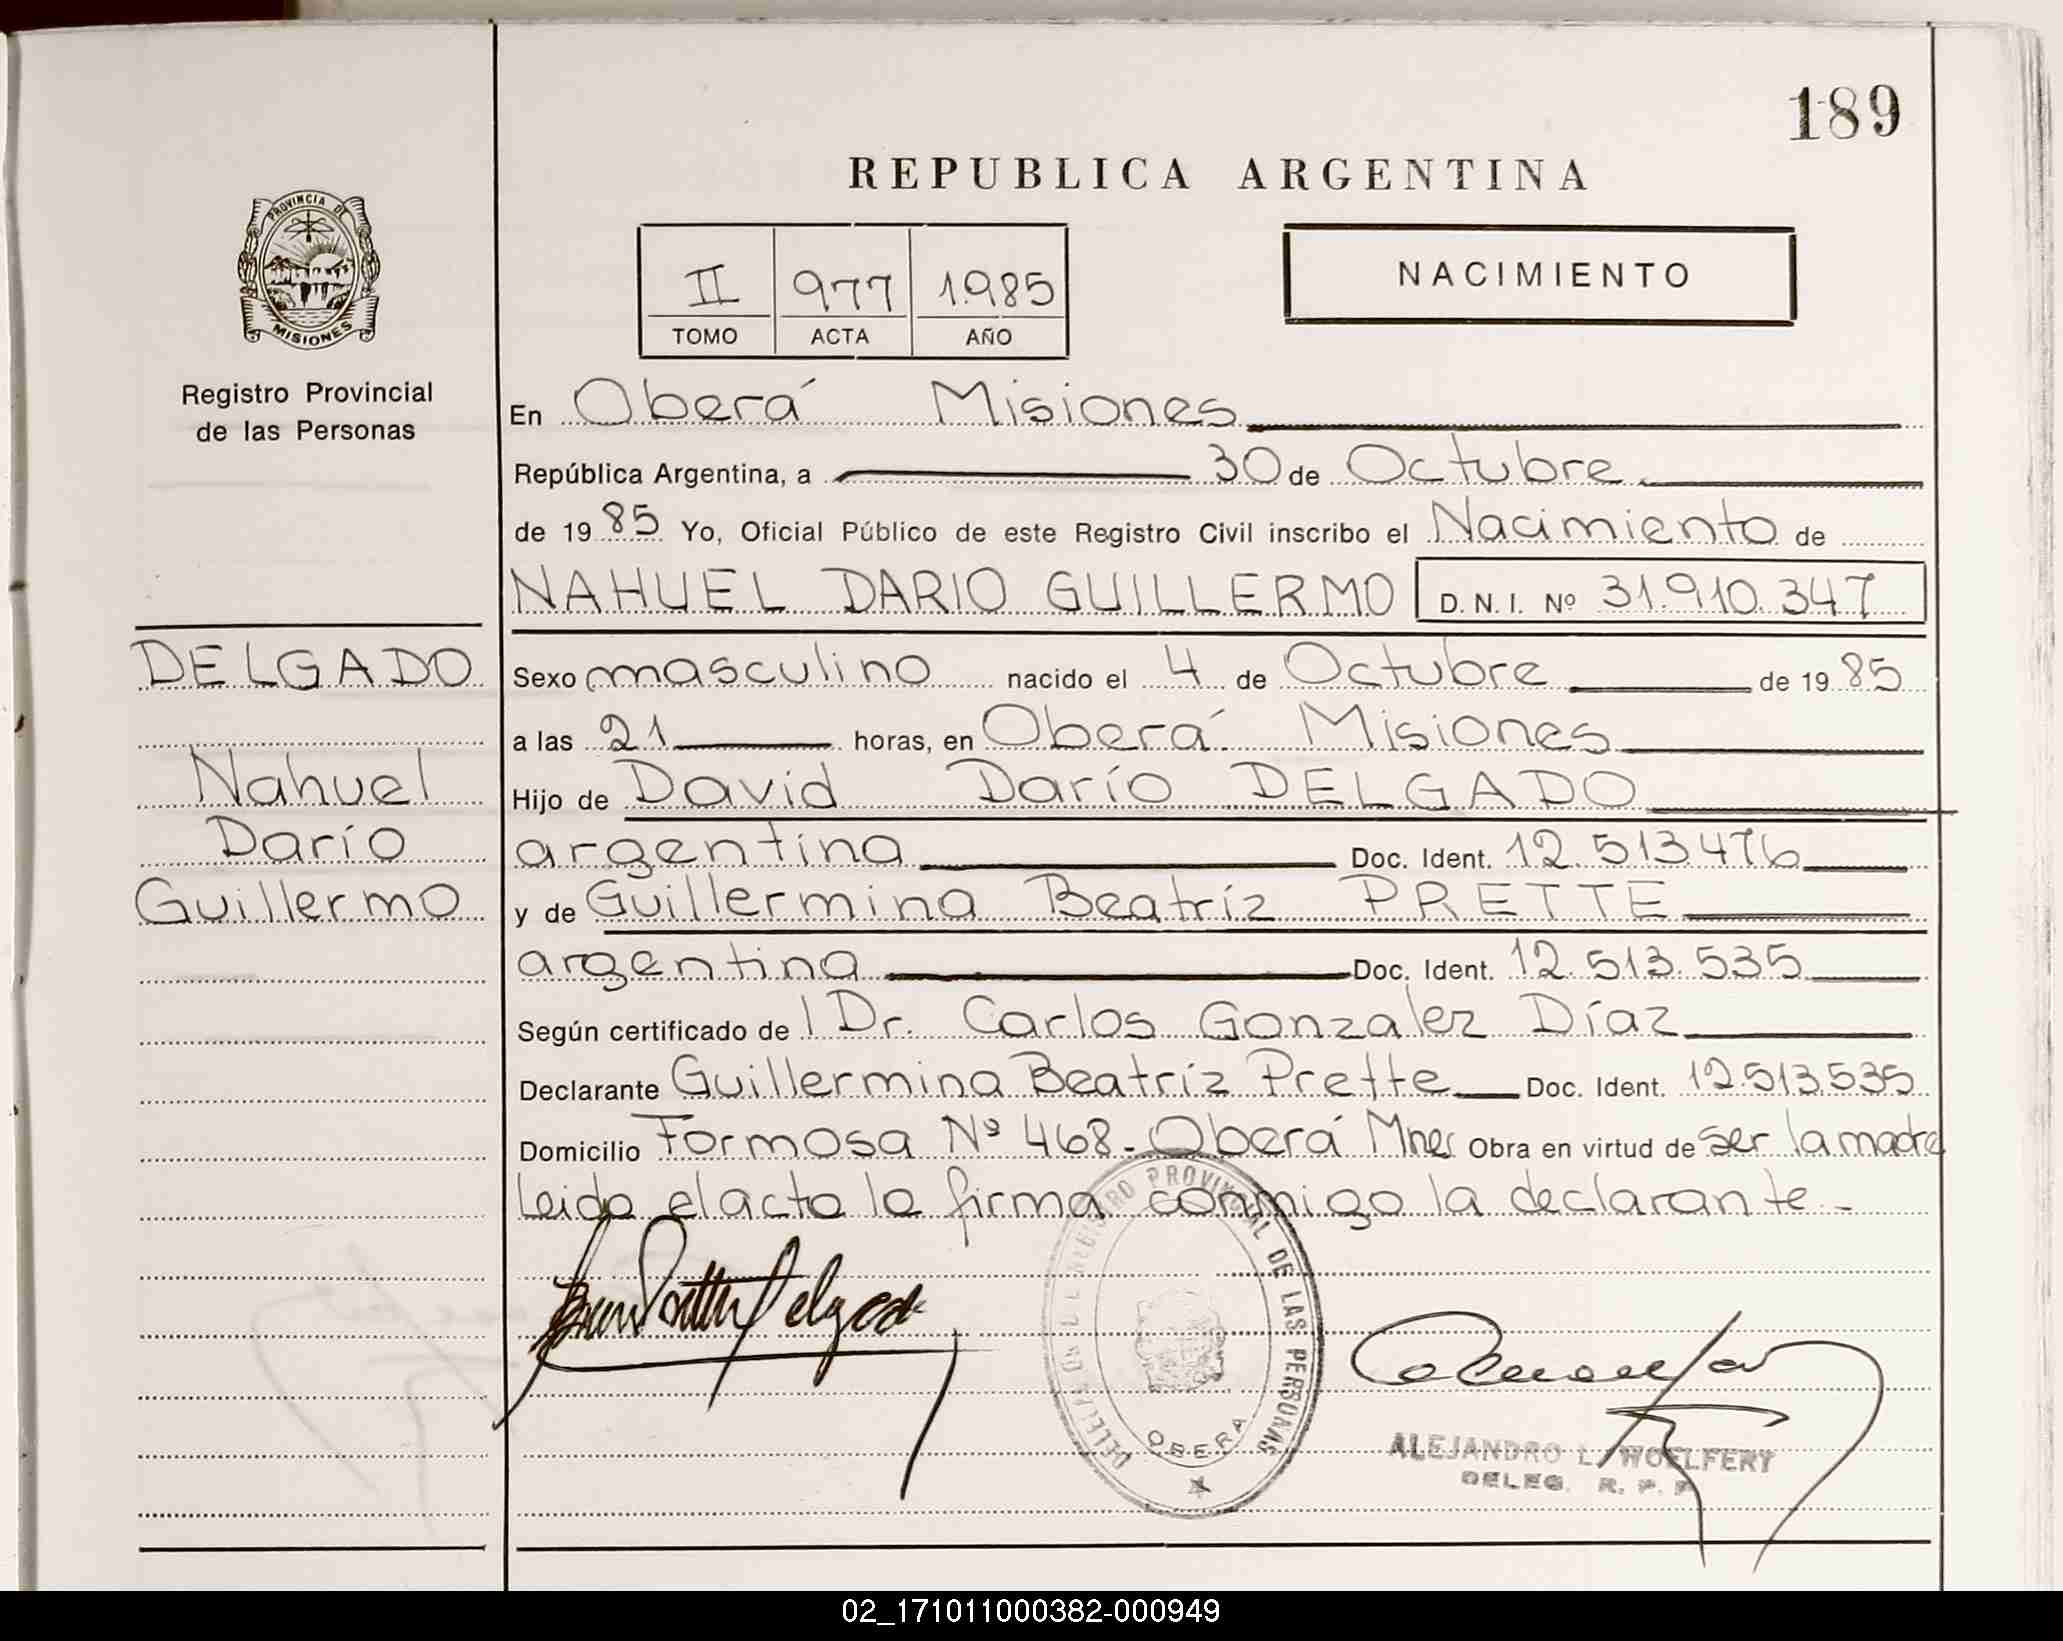 189
REPUBLICA ARGENTINA
PROVINCIA DE
MISIONES
Registro Provincial
de las Personas
II 977 1985
TOMO ACTA AÑO
NACIMIENTO
En Oberá Misiones
República Argentina, a 30 de Octubre
de 1985 Yo, Oficial Público de este Registro Civil inscribo el Nacimiento de
NAHUEL DARIO GUILLERMO D.N.I. Nº 31.910.347
DELGADO
Nahuel
Darío
Guillermo
Sexo masculino nacido el 4 de Octubre de 1985
a las 21 horas, en Oberá Misiones
Hijo de David Darío DELGADO
argentina Doc. Ident. 12.513.476
y de Guillermina Beatríz PRETTE
argentina Doc. Ident. 12.513.535
Según certificado de Dr. Carlos Gonzalez Díaz
Declarante Guillermina Beatríz Prette Doc. Ident. 12.513.535
Domicilio Formosa Nº 468- Oberá Mnes Obra en virtud de ser la madre
Leido el acto lo firma conmigo la declarante-
DELEGACION DEL REGISTRO PROVINCIAL DE LAS PERSONAS
OBERA
ALEJANDRO L. WOELFERT
DELEG. R. P. P.
02_171011000382-000949